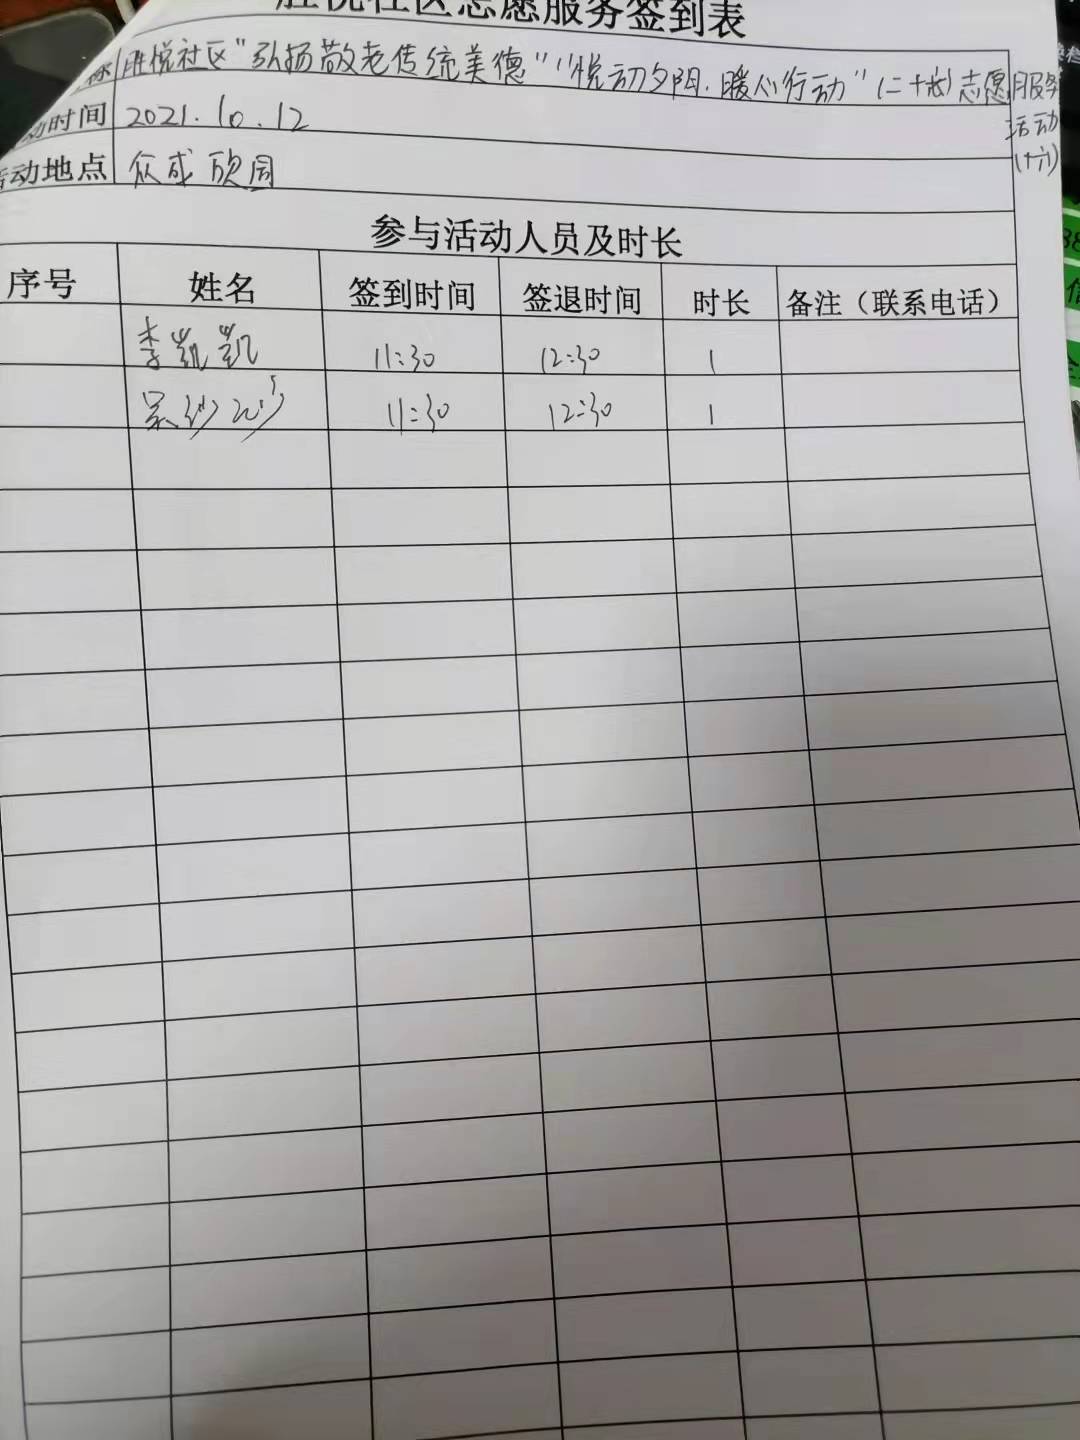 胜悦社区志愿服务签到表
称 胜悦社区"弘扬敬老传统美德""悦动夕阳.暖心行动" 志愿服务
活动
(十六)
动时间 2021.10.12
活动地点 众成欣园
参与活动人员及时长
序号 姓名 签到时间 签退时间 时长 备注（联系电话）
李凯凯 11:30 12:30 1
11:30 12:30 1